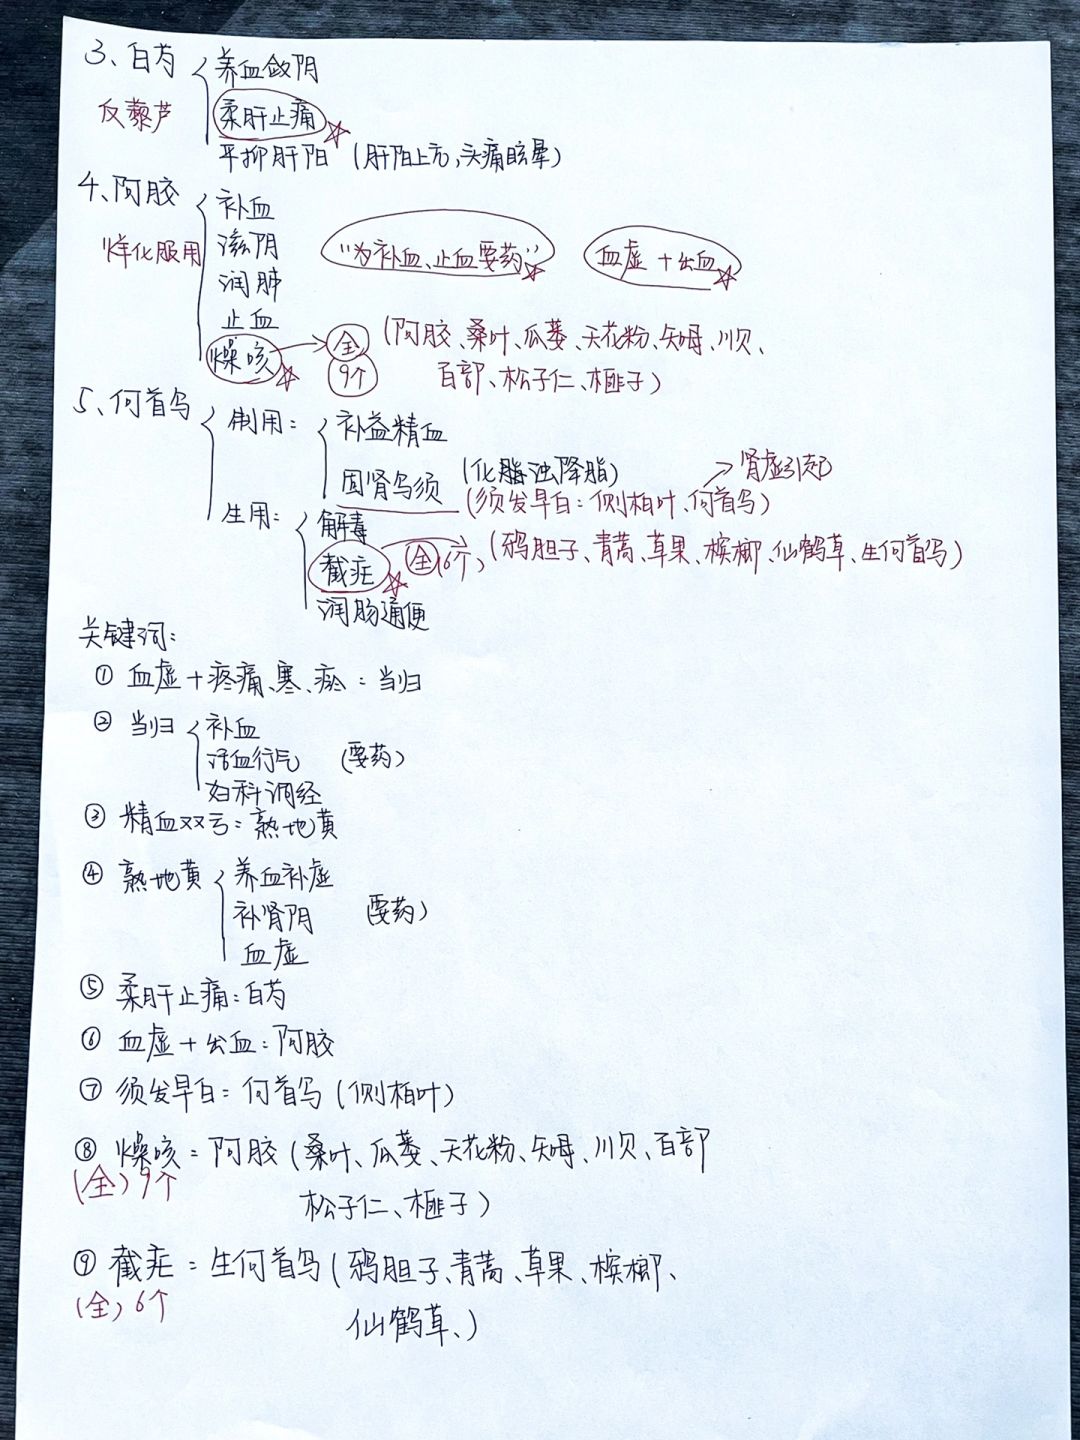 3、白芍 养血敛阴
反藜芦 柔肝止痛
平抑肝阳 (肝阳上亢,头痛眩晕)
4、阿胶 补血
烊化服用 滋阴 "为补血、止血要药" 血虚+出血
润肺
止血
燥咳 全 (阿胶、桑叶、瓜蒌、天花粉、知母、川贝、
9个 百部、松子仁、榧子)
5、何首乌 制用: 补益精血
固肾乌须 (化脂浊降脂) 肾虚引起
(须发早白:侧柏叶、何首乌)
生用: 解毒
截疟 全(6个, (鸦胆子、青蒿、草果、槟榔、仙鹤草、生何首乌)
润肠通便
关键词:
① 血虚+疼痛、寒、瘀:当归
② 当归 补血
活血行气 (要药)
妇科调经
③ 精血双亏:熟地黄
④ 熟地黄 养血补虚
补肾阴 (要药)
血虚
⑤ 柔肝止痛:白芍
⑥ 血虚+出血:阿胶
⑦ 须发早白:何首乌(侧柏叶)
⑧ 燥咳:阿胶(桑叶、瓜蒌、天花粉、知母、川贝、百部
(全)9个 松子仁、榧子)
⑨ 截疟:生何首乌(鸦胆子、青蒿、草果、槟榔、
(全)6个 仙鹤草、)